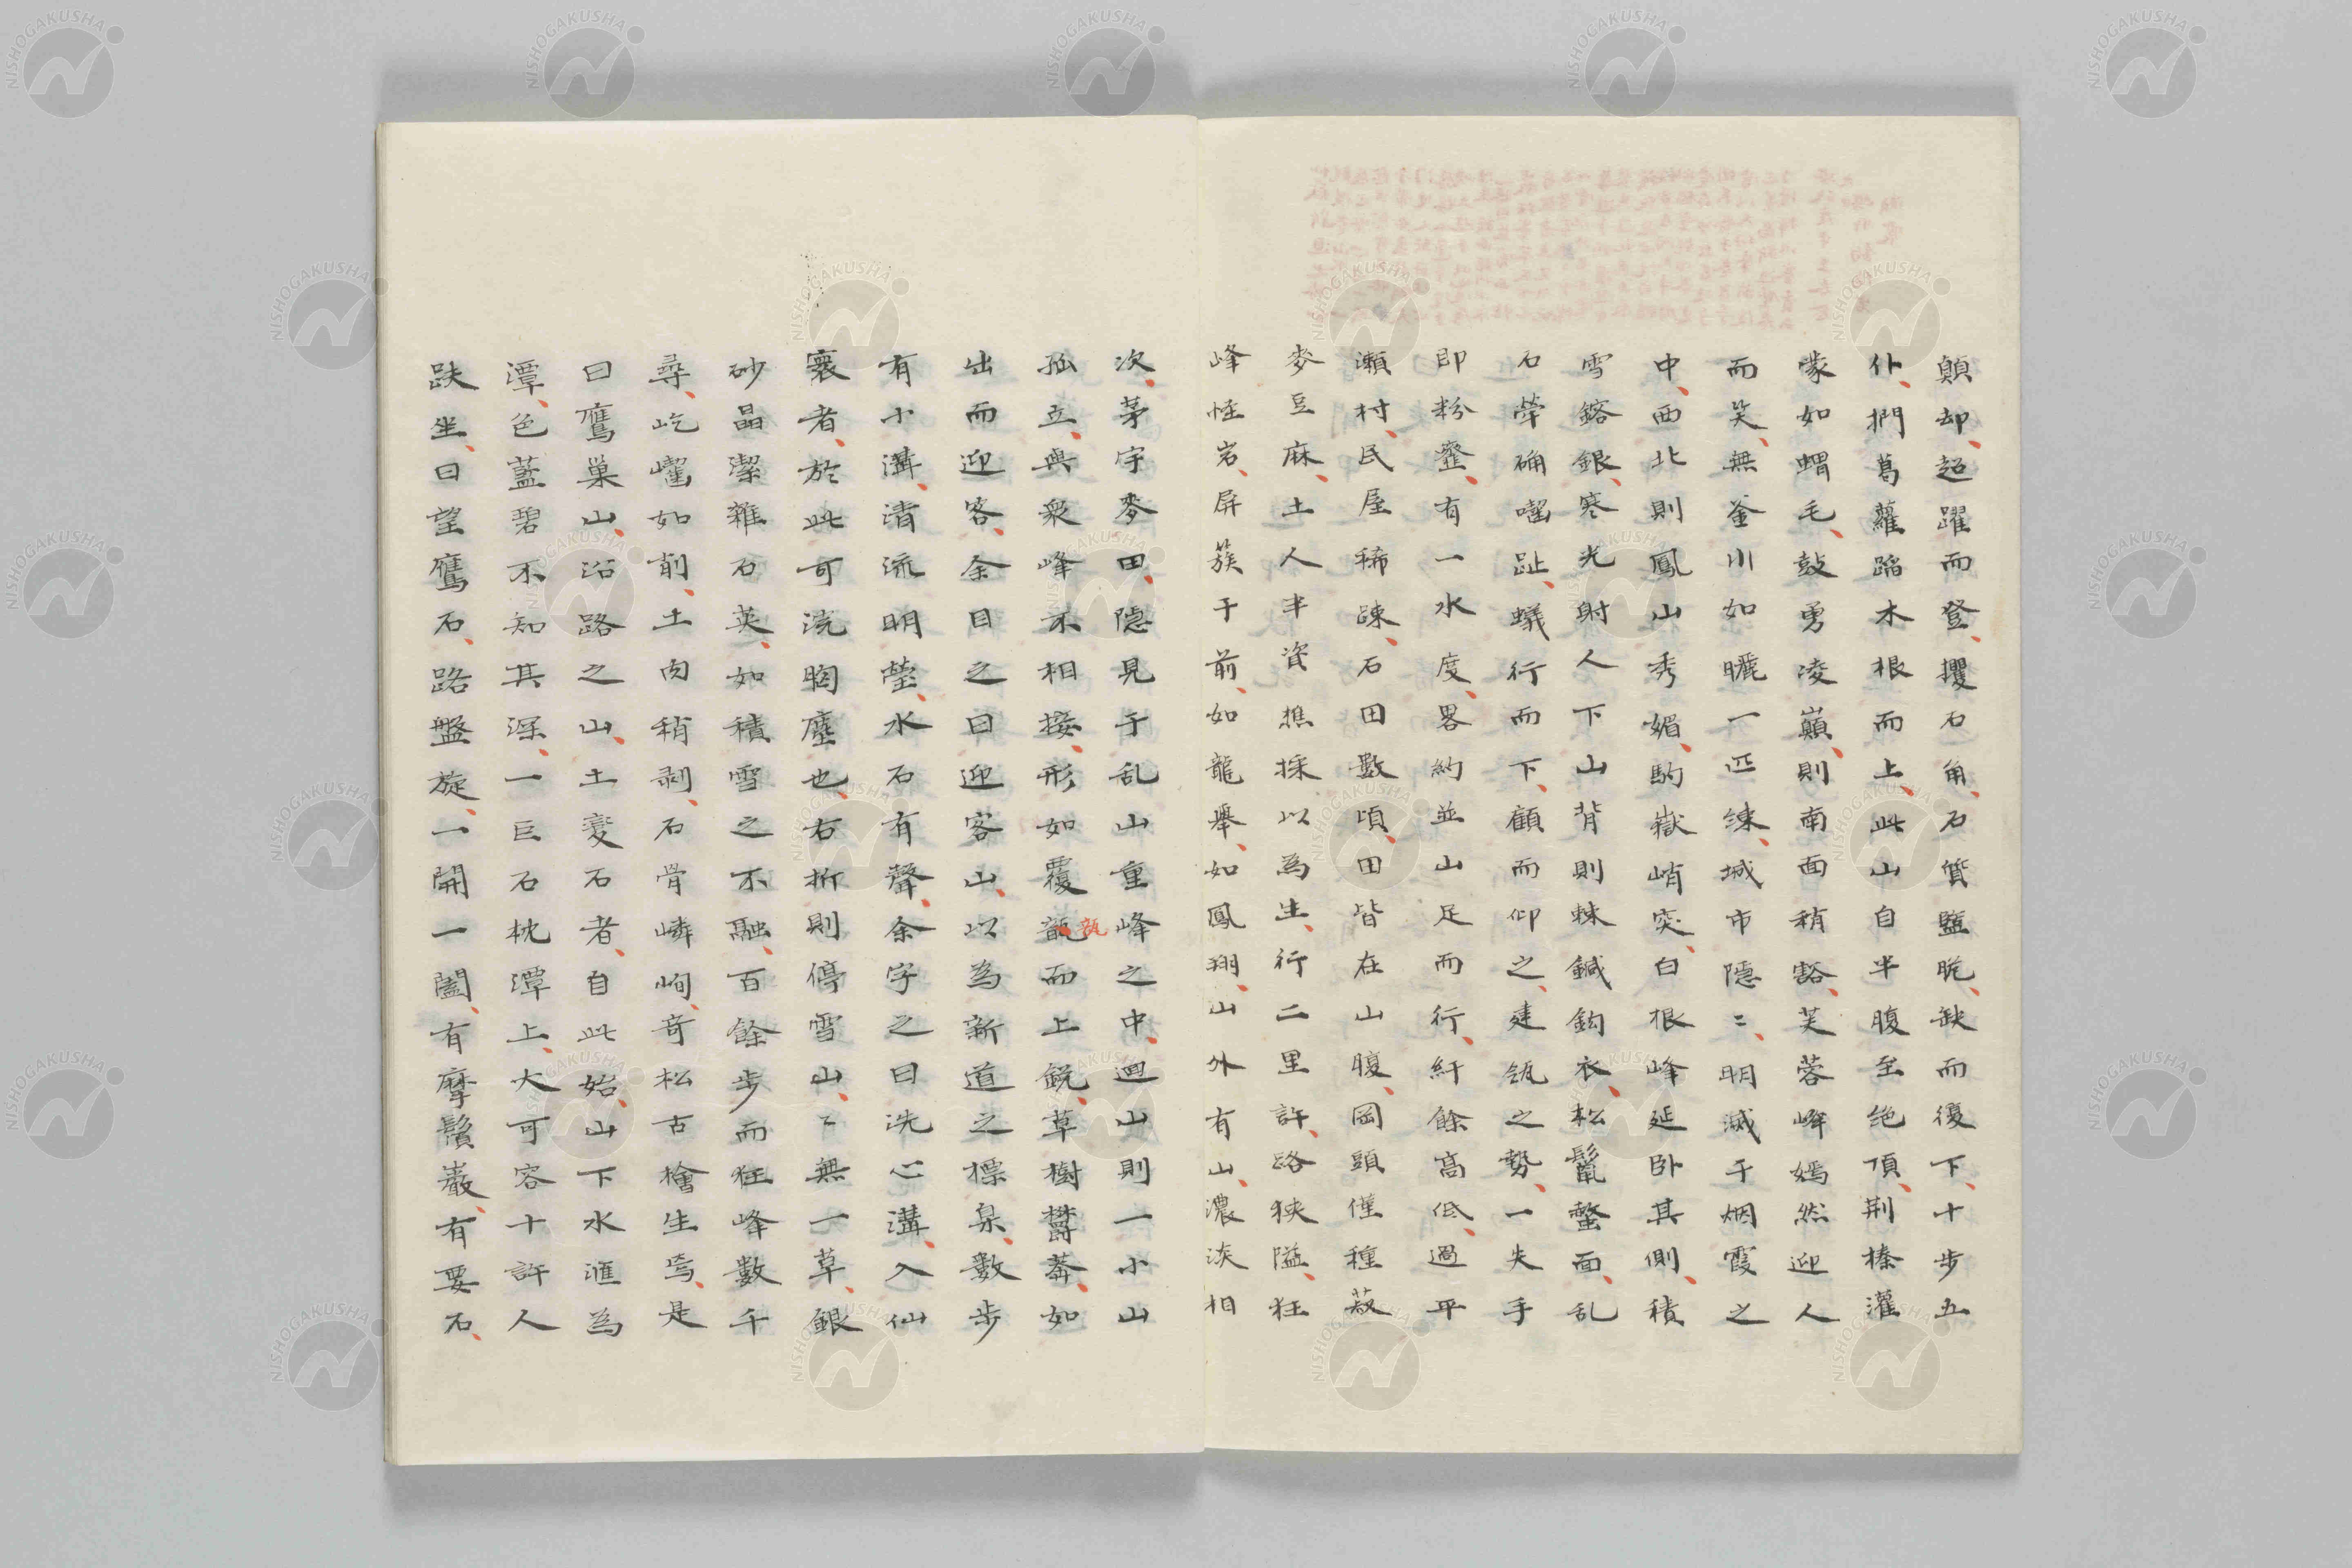 顛却、超躍而登、攫石角、石質鹽脆、缺而復下、十步五
仆、捫葛蘿蹈木根而上、此山自半腹至絶頂、荆榛灌
蒙如蝟毛、鼓勇凌巓、則南面稍豁、芙蓉峰嫣然迎人
而笑、無釜川如曬一匹練、城市隱〻、明滅于烟霞之
中、西北則鳳山秀媚、駒嶽峭突、白根峰延臥其側、積
雪鎔銀、寒光射人下山背則棘鍼鈎衣、松鬣螫面、乱
石犖确囓趾、蟻行而下、顧而仰之、建瓴之勢、一失手
即粉韲、有一水度、畧約並山足而行、紆餘高低、過平
瀬村、民屋稀踈、石田數頃、田皆在山腹、岡頭僅種菽
麥豆麻、土人半資樵採以為生、行二里許、路狹隘、狂
峰怪岩、屏簇于前、如龍擧、如鳳翔、山外有山、濃淡相
次、茅宇麥田、隱見于乱山重峰之中、迴山則一小山
孤立、與衆峰不相接、形如覆瓿而上鋭、草樹欝蓊、如
出而迎客、余目之曰迎客山、以為新道之標臬、數步
有小溝、清流明瑩、水石有聲、余字之曰洗心溝、入仙
寰者、於此可洗胸塵也、右折則停雪山、〻無一草、銀
砂晶潔雜石英、如積雪之不融、百餘步而狂峰數千
尋、屹嶵如削、土肉稍剥、石骨嶙峋、奇松古檜生焉、是
曰鷹巢山、沿路之山、土變石者、自此始、山下水滙為
潭、色藍碧不知其深、一巨石枕潭上、大可容十許人
趺坐、曰望鷹石、路盤旋、一開一闔、有摩鬚巖、有要石、
瓿